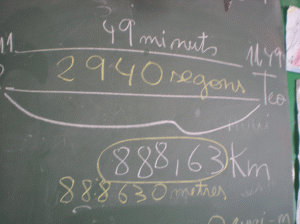 49 minuts
11 11,49
2940 segons Teo
888,63 Km
888630 metres